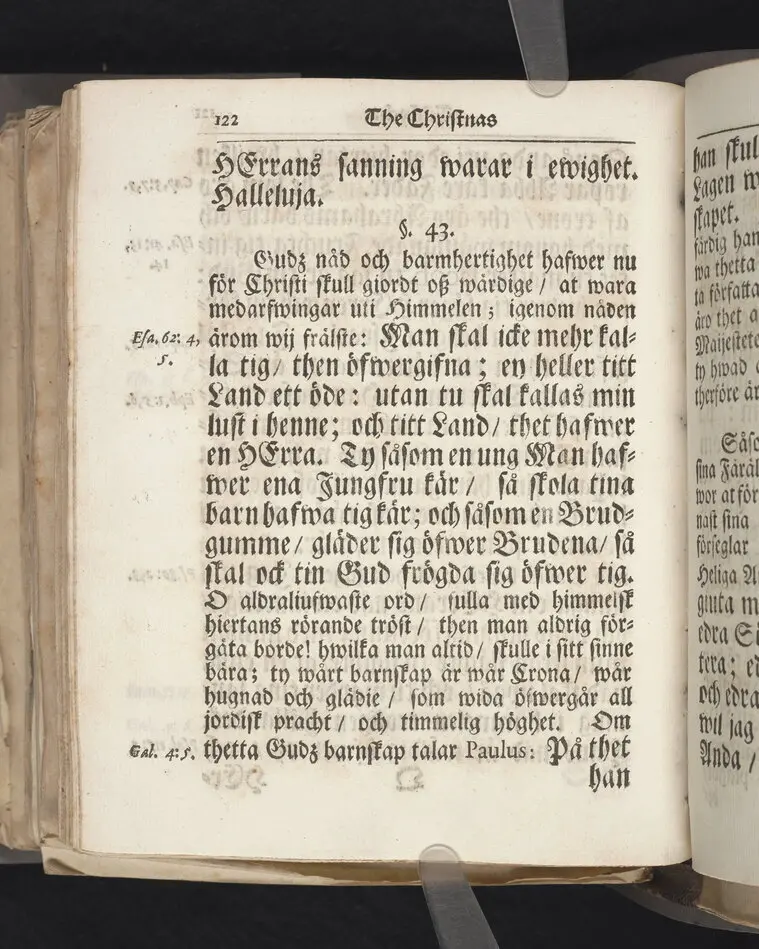 122 The Christnas
HErrans sanning warar i ewighet.
Halleluja.
§. 43.
Gudz nåd och barmhertighet hafwer nu
för Christi skull giordt oß wärdige / at wara
medarfwingar uti Himmelen; igenom nåden
Esa. 62: 4, ärom wij frälste: Man skal icke mehr kal⸗
5. la tig / then öfwergifna; ey heller titt
Land ett öde: utan tu skal kallas min
lust i henne; och titt Land / thet hafwer
en HErra. Ty såsom en ung Man haf⸗
wer ena Jungfru kär / så skola tina
barn hafwa tig kär; och såsom en Brud⸗
gumme / gläder sig öfwer Brudena / så
skal ock tin Gud frögda sig öfwer tig.
O aldraliufwaste ord / fulla med himmelsk
hiertans rörande tröst / then man aldrig för⸗
gäta borde! hwilka man altid / skulle i sitt sinne
bära; ty wårt barnskap är wår Crona / wår
hugnad och glädie / som wida öfwergår all
jordisk pracht / och timmelig höghet. Om
Gal. 4: 5. thetta Gudz barnskap talar Paulus: På thet
han
han skul
Lagen w
skapet.
färdig han
wa thetta
ta författa
äro thet a
Maijestete
ty hwad
therföre är
Såso
sina Färäl
wor at för
nast sina
förseglar
Heliga A
giuta m
edra Sö
tera; ed
och edra
wil jag
Anda /